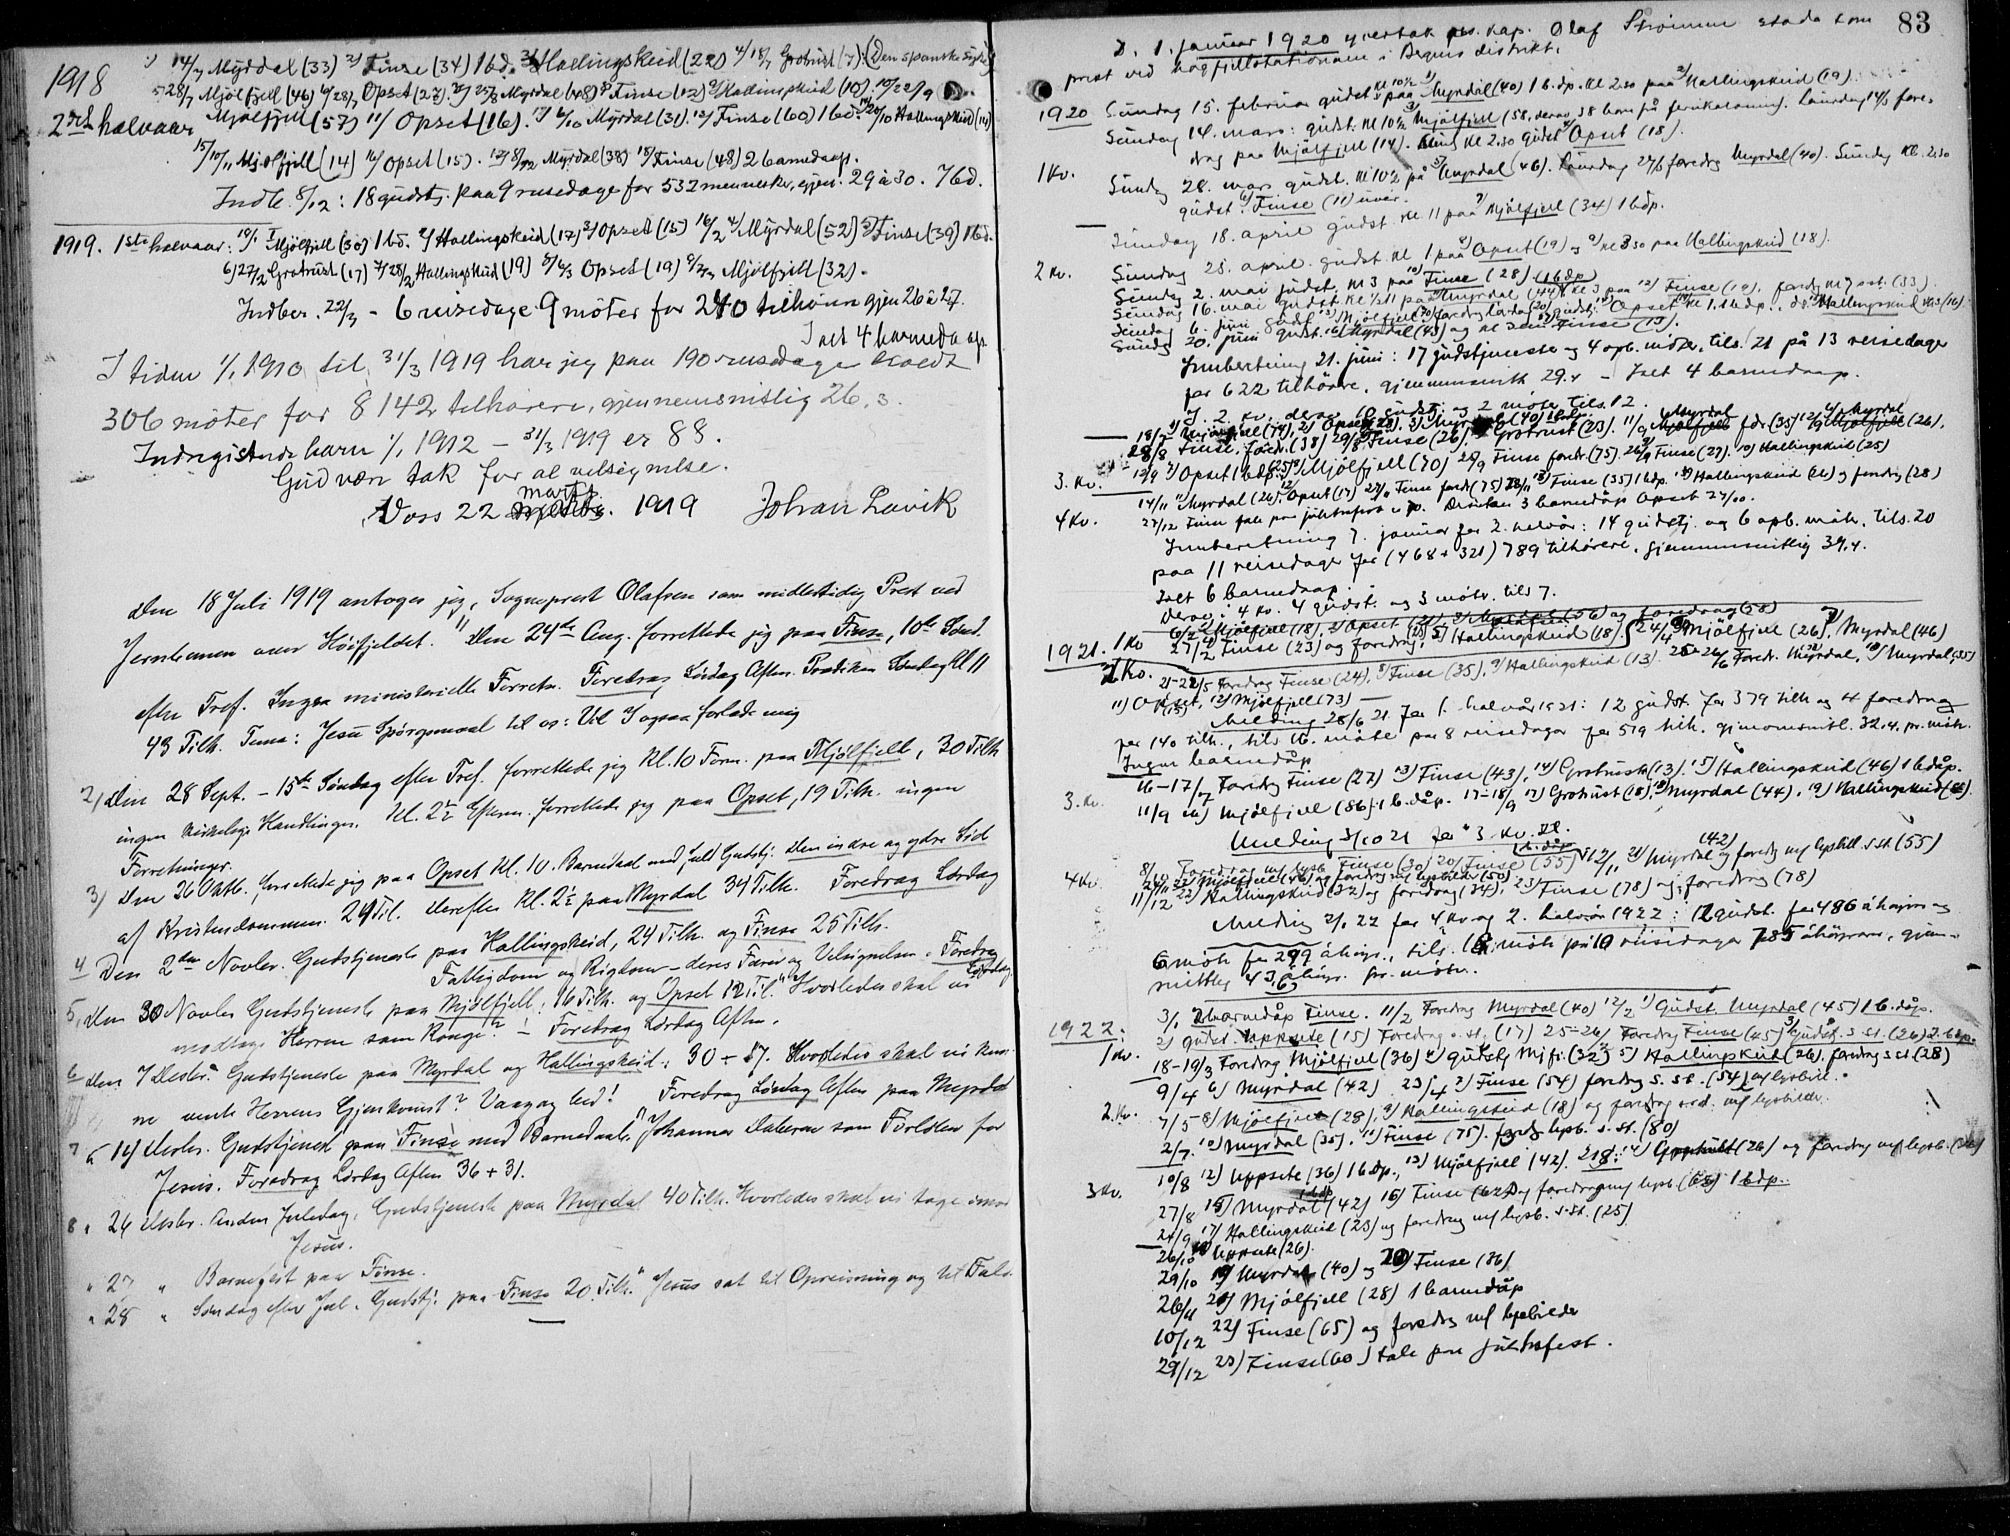 1918
1) 14/7 Myrdal (33) 2) Finse (34) 1 bd. 3) Hallingskeid (22) 4/ 18/7 Grotrust (7). (Den spanske syke)
5) 28/7 Mjölfjell (46) 6/ 28/7 Opset (27) 7/ 25/8 Myrdal (48) 8) Finse (12) 9/ Hallingskeid (10). 10/ 22/9
2det halvaar Mjölfjell (57) 11/ Opset (16). 6/10 Myrdal (31). 13/ Finse (60) 1 bd. 20/10 Hallingskeid
15) 10/11 Mjölfjell (14) 16/ Opset (15). 17) 8/12 Myrdal (38) 18) Finse (48) 2 barnedaap.
Indb. 8/12: 18 gudstj. paa 9 reisedage for 532 mennesker, gjen. 29 à 30. 7 bd.
1919. 1ste halvaar: 19/1 Mjölfjell (30) 1 bd. 2/ Hallingskeid (17) 3) Opset (15) 16/2 4/ Myrdal (52) 5) Finse (39) 1 bd.
6) 27/2 Grotrust (17) 7/ 28/2 Hallingskeid (19) 8/ 9/3 Opset (19) 9/ Mjölfjell (32).
Indber. 22/3 - 6 reisedage 9 möter for 240 tilhörere gjen 26 à 27.
Ialt 4 barnedaap.
I tiden 1/1 1910 til 31/3 1919 har jeg paa 190 reisedage holdt
306 möter for 8142 tilhörere, gjennemsnitlig 26,3.
Indregistrerte barn 1/1 1912 - 31/3 1919 er 88.
Gud være tak for al velsignelse.
Voss 22 marts 1919 Johan Lavik
Den 18 Juli 1919 antoges jeg, Sogneprest Olafsen som midlertidig Prest ved
Jernbanen over Höifjeldet. 1) Den 24de Aug. forrettede jeg paa Finse, 10de Sönd.
efter Tref. Ingen ministerielle Forretn. Foredrag Lördag Aften. Prædiken Söndag Kl 11
43 Tilh. Tema: Jesu Spörgsmaal til os: Vil I ogsaa forlade mig
2) Den 28 Sept. - 15de Söndag efter Tref. forrettede jeg Kl. 10 Form. paa Mjölfjell, 30 Tilh
ingen kirkelige Handlinger. Kl. 2½ Efterm. forrettede jeg paa Opset, 19 Tilh. ingen
Forretninger.
3) Den 26 Oktb. forrettede jeg paa Opset Kl. 10. Barnedaab med fuld Gudstj: Den indre og ydre Sid
af Kristendommen. 24 Til. Derefter Kl. 2½ paa Myrdal 34 Tilh. Foredrag Lördag
4 Den 2den Novbr. Gudstjeneste paa Hallingskeid, 24 Tilh. og Finse 25 Tilh.
Fattigdom og Rigdom - deres Farer og Velsignelser. Foredrag Lördag
5, Den 30 Novbr Gudstjeneste paa Mjölfjell: 16 Tilh. og Opset 12 Til. "Hvorledes skal vi
modtage Herren som Konge?" - Foredrag Lördag Aften.
6 Den 7 Desbr. Gudstjeneste paa Myrdal og Hallingskeid: 30 + 17. Hvorledes skal vi kun
ne vente Herrens Gjenkomst? Vaag og bed! Foredrag Lördag Aften paa Myrdal
7 14 Desbr. Gudstjenest paa Finse med Barnedaab. "Johannes Döberen som Forlöber for
Jesus. Foredrag Lördag Aften 36 + 31.
8 " 26 Desbr. Anden Juledag, Gudstjeneste paa Myrdal 40 Tilh. Hvorledes skal vi tage imod
Jesus.
" 27 " Barnefest paa Finse.
" 28 " Söndag efter Jul. Gudstj. paa Finse 20 Tilh. "Jesus sat til Opreisning og til Fald.
83
D. 1. januar 1920 overtok pres. kap. Olaf Strömme stada som
prest ved högfjellstationane i Bergens distrikt.
1920 Sundag 15. februar gudst. kl 10½ paa 1) Myrdal (40) 1 b.dp. kl 2.30 paa 2) Hallingskeid (19).
Sundag 14. mars: gudst. kl 10½ 3) Mjölfjell (58, derav 38 born på ferikoloning. Laurdag 13/3 fore-
drag paa Mjölfjell (14). kl 2.30 gudst 4) Opset (18).
1 Kv. Sundag 28. mars gudst. kl 10½ på 5) Myrdal (46). Laurdag 27/3 foredrag Myrdal (40). Sundag kl. 2.30
gudst. 6) Finse (11) uver.
Sundag 18. april gudst. kl 11 paa 7) Mjölfjell (34) 1 bdp.
2 Kv. Sundag 25. april. gudst. kl 1 paa 8) Opset (19) og 9) kl 3.30 paa Hallingskeid (18).
Sundag 2. mai gudst. kl 3 paa 10) Finse (28) (1 b.dp)
Sundag 16. mai gudst. kl ½11 paa Myrdal (44) kl 3 paa 12) Finse (19). foredr. kl 7 s.st. (33).
Sundag 6. juni gudst. 13) Mjölfjell (70) foredrag laurdag (20) gudst. Opset kl 1. 1 b.dp., Hallingskeid kl 3 (16).
Sundag 20. juni gudst. 16) Myrdal (43) og Finse (13).
Innberetning 21. juni: 17 gudstjeneste og 4 opb. möter, tils. 21 på 13 reisedager
for 622 tilhörere, gjennemsnitt 29.4 - Ialt 4 barnedaap.
I 2 kv. derav 10 gudstj og 2 möte, tils. 12.
18/7 Mjölfjell (74), 2) Opset (28), 3) Myrdal (40) 11/9 Myrdal fdr. (35) 12/9 Myrdal (26),
28/8 Finse. Foredr. (38) 29/8 Finse (26), Grotrust (23).
3. Kv. 12/9 Opset 1 bdp. (25) Mjölfjell (70) 25/9 Finse foredr. (75) 26/9 Finse (27). 10) Hallingskeid (25)
14/11 11) Myrdal (26), 12) Opset (17) 27/11 Finse foredr (75) 28/11 13) Finse (35) 1 bdp. 14) Hallingskeid (26) og foredrag (28)
4 Kv. 27/12 Finse tale paa juletrefest Desuten 3 barnedåp Opset 24/10.
Innberetning 7. januar for 2. halvår: 14 gudstj. og 6 opb. möte, tils. 20
paa 11 reisedage for (468 + 321) 789 tilhörere, gjennemsnitlig 39.4.
Ialt 6 barnedaap.
Derav i 4 kv. 4 gudst. og 3 möte. tils 7.
1921. 1 Kv 6/2 1) Mjölfjell (18), 2) Opset (21), 3) Myrdal (56) og foredrag (58)
27/2 4) Finse (23) og foredrag, 5) Hallingskeid (18). 24/4 6) Mjölfjell (26) 7) Myrdal (46)
2 Kv. 21-22/5 Foredrag Finse (24), 8) Finse (35), 9) Hallingskeid (13). 25-26/6 Foredr. Myrdal, 10) Myrdal (35)
11) Opset (15), 12) Mjölfjell (73) -
Melding 28/6 21 for 1. halvår 1921: 12 gudst. for 379 tilh og 4 foredrag
for 140 tilh., tils. 16. möte paa 8 reisedagar for 519 tilh. gjenomsnitl. 32.4. pr. möte.
Ingen barnedåp.
16-17/7 Foredr Finse (27) 13) Finse (43), 14) Grotrust (13). 15) Hallingskeid (46) 1 b.dåp.
3. Kv. 11/9 16) Mjölfjell (86) 1 b.dåp. 17-18/9 17) Grotrust (18), 18) Myrdal (44), 19) Hallingskeid
Melding 3/10 21 for 3. Kv.
4 Kv. 8/10 Foredrag m/ lysb. Finse (30) 20) Finse (55) 12/11 21) Myrdal (42) og foredrag m/ lysbill. s.st (55)
Mjölfjell (46) og foredrag m/ lysbilder (50)
11/12 22) Hallingskeid (32) og foredrag (34), 23) Finse (78) og foredrag (78)
Melding 2/1 22 for 4 kv og 2. halvår 1922: 12 gudst. for 486 åhöyr. og
6 möte for 299 åhöyr., tils. 18 möte på 10 reisedagar 785 åhöyrarar, gjen-
nittleg 43,6 åhöyr. pr. möte.
1922. 3/1 2 barnedåp Finse. 11/2 Foredrag Myrdal (40) 12/2 1) Gudst. Myrdal (45) 1 b.dåp.
2) gudst. Uppsete (15) Foredrag s. st. (17) 25-26/2 Foredrag Finse (45) 3) gudst. s. st. (26) 2 b.dp.
1 Kv. 18-19/3 Foredrag Mjölfjell (36) 4) gudstj Mjfj. (32) 5) Hallingskeid (26), foredrag s.st. (28)
9/4 6) Myrdal (42) 23/4 7) Finse (54) foredrag s. st. (54) m/ lysbild.
2. Kv. 7/5 8) Mjölfjell (28), 9) Hallingskeid (18) og foredrag m/ lysbilder.
2/7. 10) Myrdal (35). 11) Finse (75). foredr. lysb. s. st. (80)
10/8 12) Uppsete (36) 1 b.dp., 13) Mjölfjell (42). (26) og foredrag m/ lysb.
3 Kv. 27/8 15) Myrdal (42) 16) Finse (62) og foredrag m/ lysb (65) 1 b.dp.
24/9 17) Hallingskeid (23) og foredrag m/ lysb. s.st. (25)
26/10 18) Uppsete (26).
29/10 19) Myrdal (40) og 20) Finse (76)
26/11 21) Mjölfjell (28) 1 barnedåp
10/12 22) Finse (65) og foredrag m/ lysbilder
29/12 23) Finse (60) tale paa juletrefest.